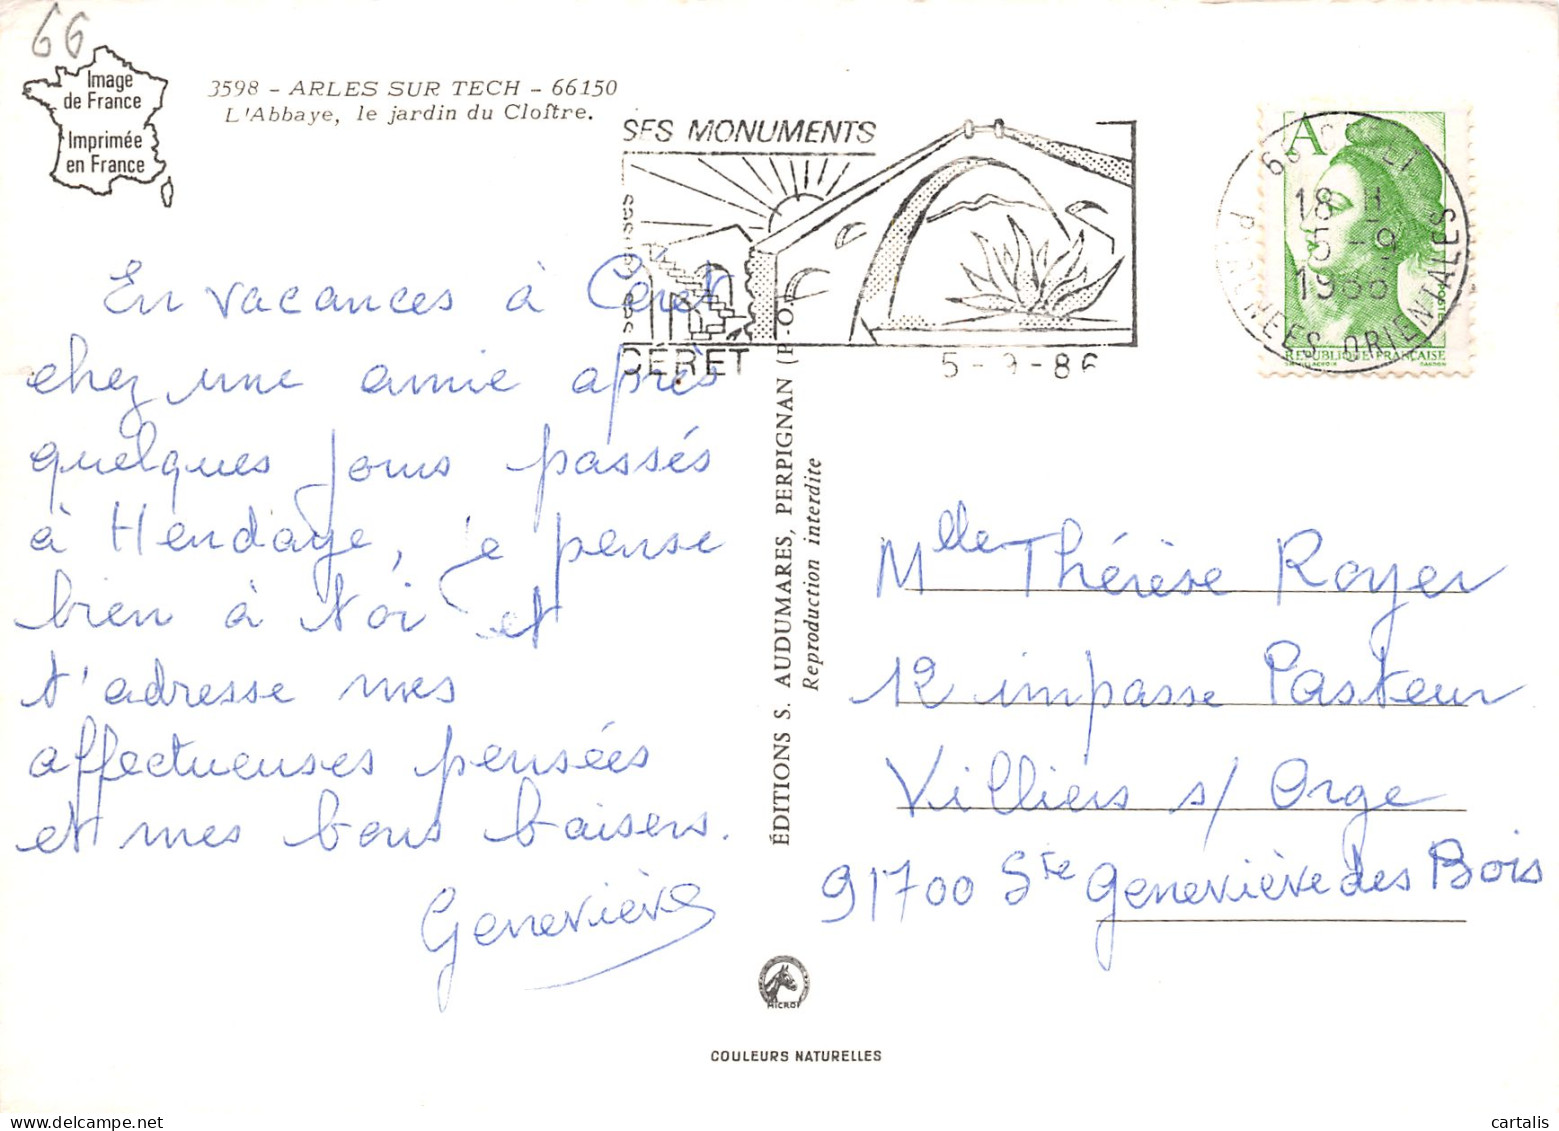 66
Image
de France
Imprimée
en France
3598 - ARLES SUR TECH - 66150
L'Abbaye, le jardin du Cloître.
SES MONUMENTS
CÉRET
5-9-86
A
18 H
5-9
1986
PYRENEES ORIENTALES
REPUBLIQUE FRANCAISE
En vacances à Céret
chez une amie après
quelques jours passés
à Hendaye, je pense
bien à toi et
t'adresse mes
affectueuses pensées
et mes bons baisers.
Geneviève
ÉDITIONS S. AUDUMARES, PERPIGNAN (P.-O.)
Reproduction interdite
Mlle Thérèse Royer
12 impasse Pasteur
Villiers s/ Orge
91700 Ste Geneviève des Bois
COULEURS NATURELLES
cartalis